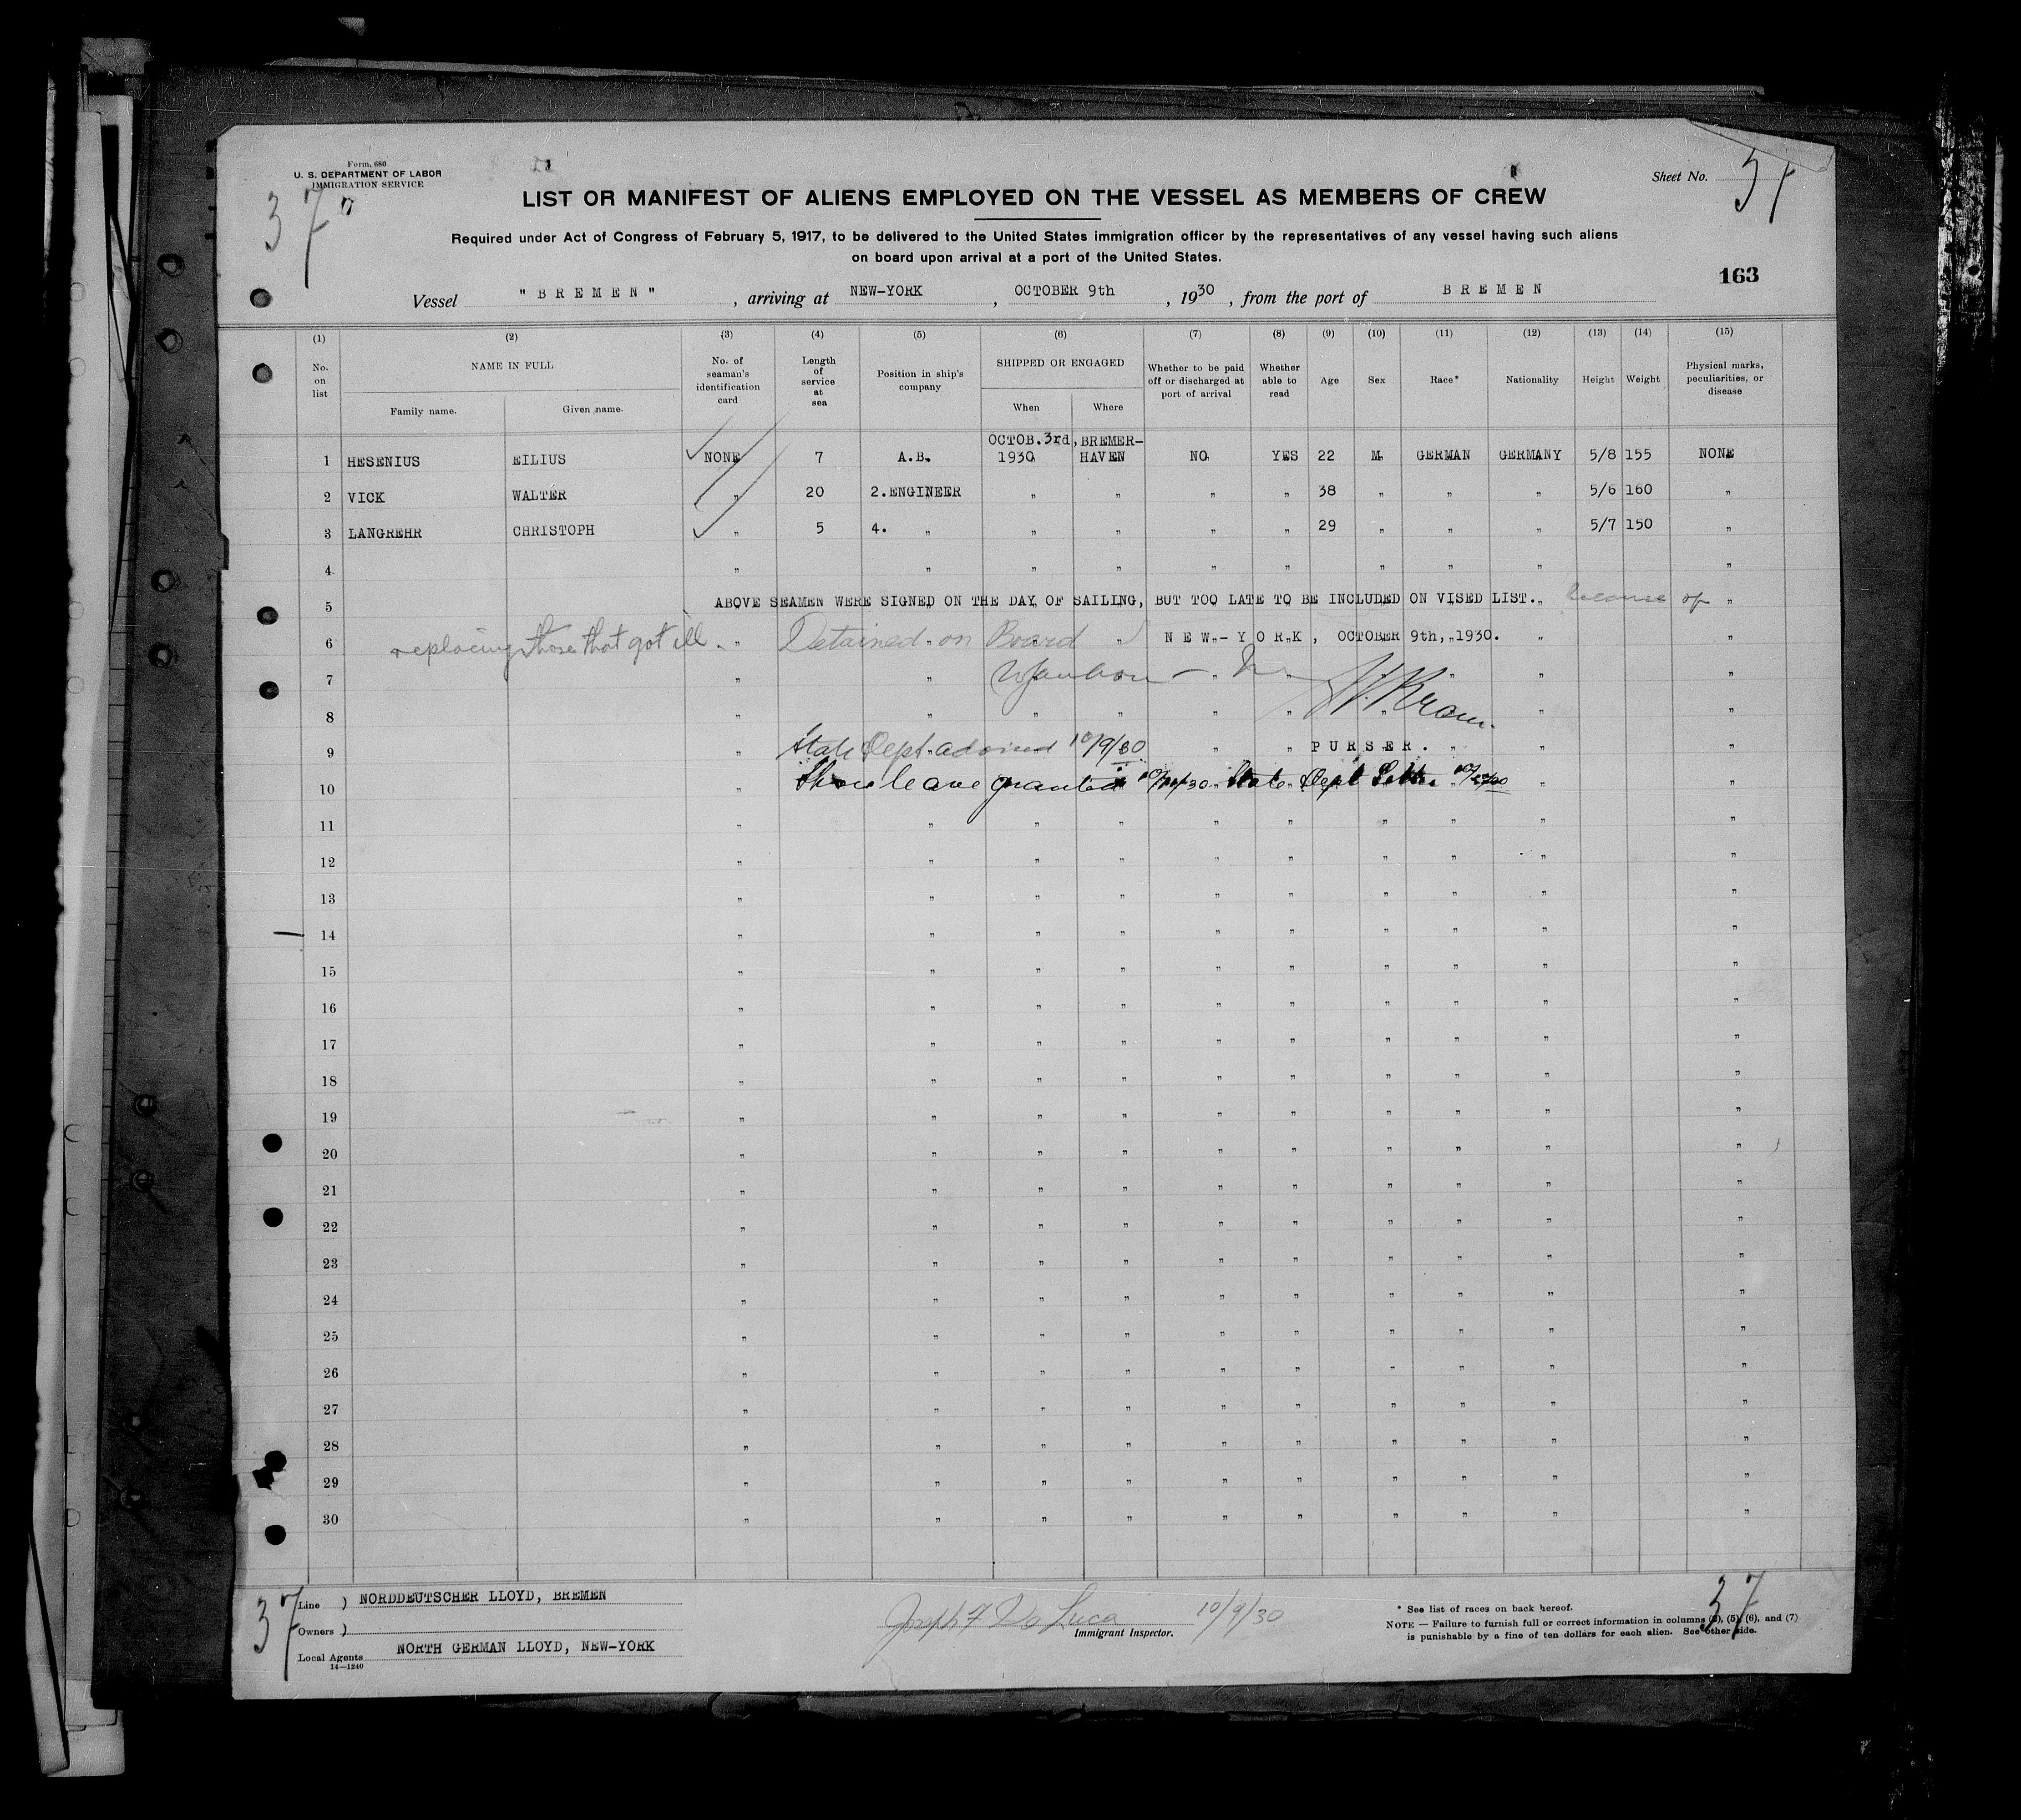 Form 680
U. S. DEPARTMENT OF LABOR
IMMIGRATION SERVICE
37
Sheet No. 37
LIST OR MANIFEST OF ALIENS EMPLOYED ON THE VESSEL AS MEMBERS OF CREW
Required under Act of Congress of February 5, 1917, to be delivered to the United States immigration officer by the representatives of any vessel having such aliens
on board upon arrival at a port of the United States.
163
Vessel "BREMEN", arriving at NEW-YORK, OCTOBER 9th, 1930, from the port of BREMEN
(1) (2) (3) (4) (5) (6) (7) (8) (9) (10) (11) (12) (13) (14) (15)
No. on list NAME IN FULL Family name. Given name. No. of seaman's identification card Length of service at sea Position in ship's company SHIPPED OR ENGAGED When Where Whether to be paid off or discharged at port of arrival Whether able to read Age Sex Race* Nationality Height Weight Physical marks, peculiarities, or disease
1 HESENIUS EILIUS NONE 7 A.B. OCTOB.3rd, 1930 BREMER-HAVEN NO YES 22 M. GERMAN GERMANY 5/8 155 NONE
2 VICK WALTER " 20 2.ENGINEER " " " " 38 " " " 5/6 160 "
3 LANGREHR CHRISTOPH " 5 4. " " " " " 29 " " " 5/7 150 "
4 " " " " " " " " " "
5 ABOVE SEAMEN WERE SIGNED ON THE DAY OF SAILING, BUT TOO LATE TO BE INCLUDED ON VISED LIST. because of "
6 replacing those that got ill. " Detained on Board NEW-YORK, OCTOBER 9th, 1930. " "
7 " " " " "
8 " " " " " " " "
9 " State Dept. advised 10/9/30 " " PURSER. " " "
10 " Shore leave granted State Dept Letter " "
11 " " " " " " " " " "
12 " " " " " " " " " "
13 " " " " " " " " " "
14 " " " " " " " " " "
15 " " " " " " " " " "
16 " " " " " " " " " "
17 " " " " " " " " " "
18 " " " " " " " " " "
19 " " " " " " " " " "
20 " " " " " " " " " "
21 " " " " " " " " " "
22 " " " " " " " " " "
23 " " " " " " " " " "
24 " " " " " " " " " "
25 " " " " " " " " " "
26 " " " " " " " " " "
27 " " " " " " " " " "
28 " " " " " " " " " "
29 " " " " " " " " " "
30 " " " " " " " " " "
37
Line ) NORDDEUTSCHER LLOYD, BREMEN
Owners )
Local Agents NORTH GERMAN LLOYD, NEW-YORK
14—1240
Joseph F De Luca 10/9/30
Immigrant Inspector.
37
* See list of races on back hereof.
NOTE — Failure to furnish full or correct information in columns (2), (5), (6), and (7)
is punishable by a fine of ten dollars for each alien. See other side.